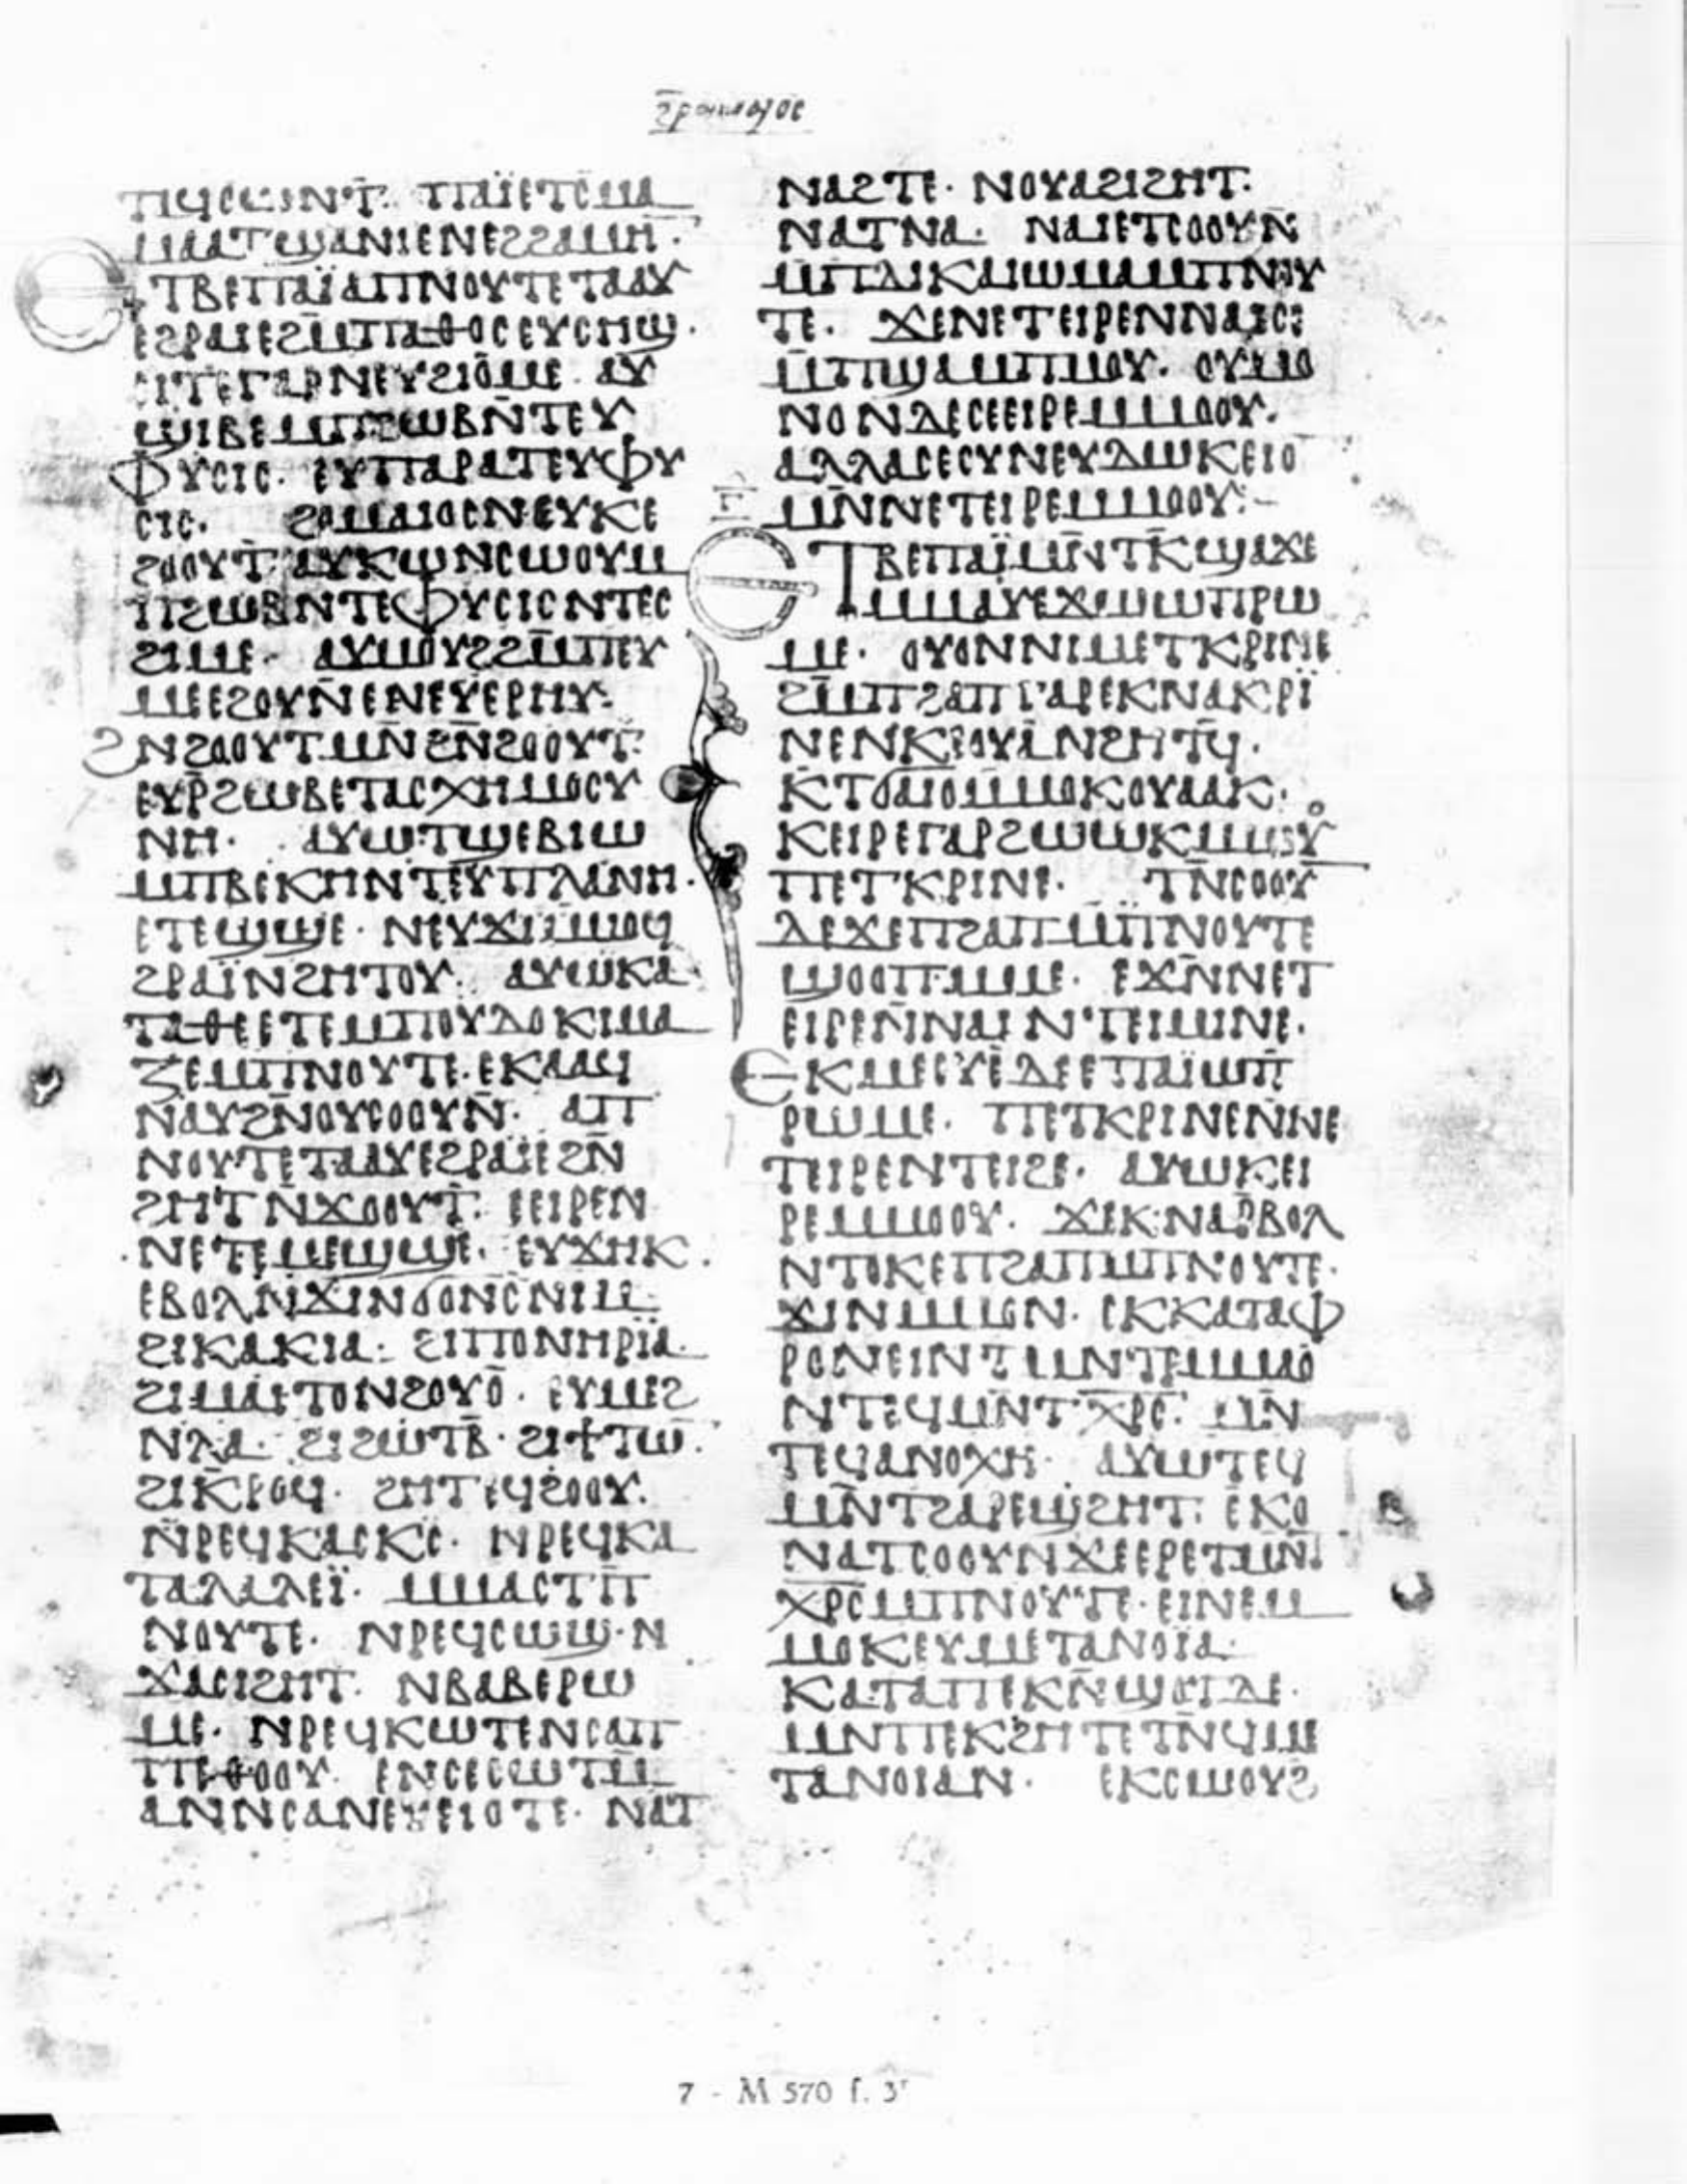 ϩⲣⲱⲙⲁⲓⲟⲥ
ⲡⲉϥⲥⲱⲛⲧ̄· ⲡⲁⲓ̈ⲉⲧⲥⲙⲁ
ⲙⲁⲁⲧϣⲁⲛⲓⲉⲛⲉϩϩⲁⲙⲏⲛ·
ⲉⲧⲃⲉⲡⲁⲓ̈ⲁⲡⲛⲟⲩⲧⲉⲧⲁⲁⲩ
ⲉϩⲣⲁⲓⲉϩⲙ̄ⲡⲁⲑⲟⲥⲉⲩⲥⲏϣ·
ⲉⲓⲧⲉⲅⲁⲣⲛⲉⲩϩⲓⲟⲙⲉ· ⲁⲩ
ϣⲓⲃⲉⲙⲡϩⲱⲃⲛ̄ⲧⲉⲩ
ⲫⲩⲥⲓⲥ· ⲉⲩⲡⲁⲣⲁⲧⲉⲩⲫⲩ
ⲥⲓⲥ· ϩⲟⲙⲁⲓⲟⲥⲛⲉⲩⲕⲉ
ϩⲟⲟⲩⲧ· ⲁⲩⲕⲱⲛⲥⲱⲟⲩⲙ
ⲡϩⲱⲃⲛⲧⲉⲫⲩⲥⲓⲥⲛⲧⲉⲥ
ϩⲓⲙⲉ· ⲁⲩⲙⲟⲩϩϩⲙ̄ⲡⲉⲩ
ⲙⲉⲉϩⲟⲩⲛ̄ⲉⲛⲉⲩⲉⲣⲏⲩ·
ϩⲛϩⲟⲟⲩⲧⲙⲛ̄ϩⲛ̄ϩⲟⲟⲩⲧ·
ⲉⲩⲣ̄ϩⲱⲃⲉⲧⲁⲥⲭⲏⲙⲟⲥⲩ
ⲛⲏ· ⲁⲩⲱⲧϣⲉⲃⲓⲱ
ⲙⲡⲃⲉⲕⲏⲛⲧⲉⲩⲡⲗⲁⲛⲏ·
ⲉⲧⲉϣϣⲉ· ⲛⲉⲩϫⲓⲙ̄ⲙⲟϥ
ϩⲣⲁⲓ̈ⲛϩⲏⲧⲟⲩ· ⲁⲩⲱⲕⲁ
ⲧⲁⲑⲉⲉⲧⲉⲙⲡⲟⲩⲇⲟⲕⲓⲙⲁ
ⲍⲉⲙⲡⲛⲟⲩⲧⲉ·ⲉⲕⲁⲁϥ
ⲛⲁⲩϩⲛ̄ⲟⲩⲥⲟⲟⲩⲛ̄· ⲁⲡ
ⲛⲟⲩⲧⲉⲧⲁⲁⲩⲉϩⲣⲁⲓ̈ⲉϩⲛ̄
ϩⲏⲧⲛϫⲟⲟⲩⲧ̄· ⲉⲉⲓⲣⲉⲛ
ⲛⲉⲧⲉⲙⲉϣϣⲉ· ⲉⲩϫⲏⲕ·
ⲉⲃⲟⲗⲛϫⲓⲛϭⲟⲛⲥⲛⲓⲙ·
ϩⲓⲕⲁⲕⲓⲁ· ϩⲓⲡⲟⲛⲏⲣⲓ̈ⲁ·
ϩⲓⲙⲁⲓⲧⲟⲛϩⲟⲩⲟ̄· ⲉⲩⲙⲉϩ
ⲛⲗⲁ· ϩⲓϩⲱⲧⲃ̄· ϩⲓϯⲧⲱ̄·
ϩⲓⲕⲣⲟϥ· ϩⲏⲧⲉϥϩⲟⲟⲩ·
ⲛ̄ⲣⲉϥⲕⲁⲥⲕⲥ̄· ⲛⲣⲉϥⲕⲁ
ⲧⲁⲗⲁⲗⲉⲓ̈· ⲙⲙⲁⲥⲧⲡ̄
ⲛⲟⲩⲧⲉ· ⲛⲣⲉϥⲥⲱϣ·ⲛ
ϫⲁⲥⲓϩⲏⲧ· ⲛⲃⲁⲃⲉⲣⲱ
ⲙⲉ· ⲛⲣⲉϥⲕⲱⲧⲉⲛⲥⲁⲡ
ⲡⲉⲑⲟⲟⲩ· ⲉⲛⲥⲉⲥⲱⲧⲙ̄
ⲁⲛⲛⲥⲁⲛⲉⲩⲉⲓⲟⲧⲉ· ⲛⲁⲧ
ⲛⲁϩⲧⲉ· ⲛⲟⲩⲁϩⲓϩⲏⲧ·
ⲛⲁⲧⲛⲁ· ⲛⲁⲓⲉⲧⲥⲟⲟⲩⲛ̄
ⲙⲡⲇⲓⲕⲁⲓⲱⲙⲁⲙⲡⲛⲟⲩ
ⲧⲉ· ϫⲉⲛⲉⲧⲉⲓⲣⲉⲛⲛⲁⲓⲥⲉ
ⲙ̄ⲡϣⲁⲙⲡⲙⲟⲩ· ⲟⲩⲙⲟ
ⲛⲟⲛⲇⲉⲥⲉⲉⲓⲣⲉⲙⲙⲟⲟⲩ·
ⲁⲗⲗⲁⲥⲉⲥⲩⲛⲉⲩⲇⲱⲕⲉⲓⲟ
ⲙⲛ̄ⲛⲉⲧⲉⲓⲣⲉⲙⲙⲟⲟⲩ:–
ⲅ̄
ⲉⲧⲃⲉⲡⲁⲓ̈ⲙⲛ̄ⲧⲕ̄ϣⲁϫⲉ
ⲙⲙⲁⲩⲉϫⲱⲱⲡⲣⲱ
ⲙⲉ· ⲟⲩⲟⲛⲛⲓⲙⲉⲧⲕⲣⲓⲛⲉ
ϩⲙ̄ⲡϩⲁⲡⲅⲁⲣⲉⲕⲛⲁⲕⲣⲓ̈
ⲛⲉⲛⲕⲉⲟⲩⲁⲛϩⲏⲧϥ̄·
ⲕⲧϭⲁⲓⲟⲙⲙⲟⲕⲟⲩⲁⲁⲕ·
ⲕⲉⲓⲣⲉⲅⲁⲣϩⲱⲱⲕⲙⲙⲟⲟⲩ
ⲡⲉⲧⲕⲣⲓⲛⲉ· ⲧⲛ̄ⲥⲟⲟⲩ
ⲇⲉϫⲉⲡϩⲁⲡⲙⲡ̄ⲛⲟⲩⲧⲉ
ϣⲟⲟⲡⲙⲙⲉ· ⲉϫⲛ̄ⲛⲉⲧ
ⲉⲓⲣⲉⲛ̄ⲛⲁⲓⲛⲧⲉⲓⲙⲓⲛⲉ·
ⲉⲕⲙⲉⲉⲩⲉⲇⲉⲉⲡⲁⲓ̈ⲱⲡ̄
ⲣⲱⲙⲉ· ⲡⲉⲧⲕⲣⲓⲛⲉⲛ̄ⲛⲉ
ⲧⲉⲓⲣⲉⲛⲧⲉⲓϩⲉ· ⲁⲩⲱⲕⲉⲓ
ⲣⲉⲙⲙⲟⲟⲩ· ϫⲉⲕⲛⲁⲣ̄ⲃⲟⲗ
ⲛⲧⲟⲕⲉⲡϩⲁⲡⲙⲡⲛⲟⲩⲧⲉ·
ϫⲓⲛⲙⲙⲟⲛ· ⲉⲕⲕⲁⲧⲁⲫ
ⲣⲟⲛⲉⲓⲛⲧⲙⲛⲧⲣⲙⲙⲁⲟ
ⲛⲧⲉϥⲙⲛⲧⲭⲣ̄ⲥ̄· ⲙⲛ̄
ⲧⲉϥⲁⲛⲟⲭⲏ· ⲁⲩⲱⲧⲉϥ
ⲙⲛ̄ⲧϩⲁⲣⲉϣϩⲏⲧ· ⲉⲕⲟ
ⲛⲁⲧⲥⲟⲟⲩⲛϫⲉⲉⲣⲉⲧⲙⲛ̄ⲧ
ⲭⲣ̄ⲥ̄ⲙⲡⲛⲟⲩⲧⲉ· ⲉⲓⲛⲉⲙ
ⲙⲟⲕⲉⲩⲙⲉⲧⲁⲛⲟⲓ̈ⲁ·
ⲕⲁⲧⲁⲡⲉⲕⲛ̄ϣⲟⲧⲇⲉ·
ⲙⲛⲡⲉⲕϩⲏⲧⲉⲧⲛ̄ϥⲙⲉ
ⲧⲁⲛⲟⲓⲁⲛ· ⲉⲕⲥⲱⲟⲩϩ
7 - M 570 f. 3ʳ